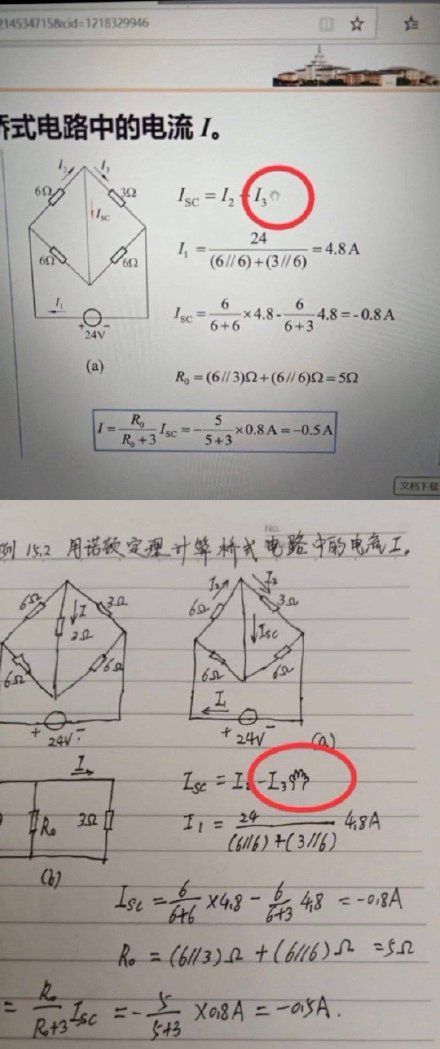 214534715&cid=1218329946
桥式电路中的电流 I。
I₂ I₃
6Ω 3Ω
I_SC
6Ω 6Ω
I₁
+ −
24V
(a)
I_SC = I₂ - I₃
I₁ = 24/((6//6)+(3//6)) = 4.8A
I_SC = 6/(6+6) ×4.8 - 6/(6+3) 4.8 = -0.8A
R₀ = (6//3)Ω+(6//6)Ω=5Ω
I = R₀/(R₀+3) I_SC = -5/(5+3) ×0.8A = -0.5A
文档下载
No.
例 15.2 用诺顿定理计算桥式电路中的电流 I。
6Ω I 3Ω
3Ω
6Ω 6Ω
+ 24V −
I₂ I₃
6Ω 3Ω
Isc
6Ω 6Ω
I₁
+ 24V −
(a)
I
R₀ 3Ω
(b)
Isc = I₂ - I₃
I₁ = 24/((6//6)+(3//6)) 4.8A
Isc = 6/(6+6) ×4.8 - 6/(6+3) 4.8 = -0.8A
R₀ = (6//3)Ω + (6//6)Ω = 5Ω
= R₀/(R₀+3) Isc = - 5/(5+3) ×0.8A = -0.5A.